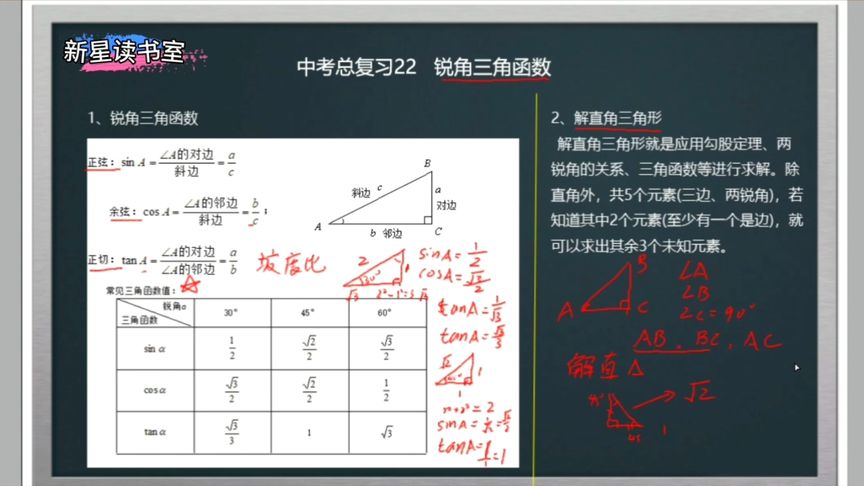 新星读书室
中考总复习22 锐角三角函数
1、锐角三角函数
正弦：sin A = ∠A的对边/斜边 = a/c
余弦：cos A = ∠A的邻边/斜边 = b/c；
正切：tan A = ∠A的对边/∠A的邻边 = a/b
坡度比
B
斜边 c
a
对边
A
b 邻边
C
2
30°
1
√3
sinA = 1/2
cosA = √3/2
tanA = 1/√3
tanA = √3/3
常见三角函数值：
锐角α
三角函数
30° 45° 60°
sin α 1/2 √2/2 √3/2
cos α √3/2 √2/2 1/2
tan α √3/3 1 √3
√2
1
1
= 2
sinA = 1/√2 = √2/2
tanA = 1/1 = 1
2、解直角三角形
解直角三角形就是应用勾股定理、两
锐角的关系、三角函数等进行求解。除
直角外，共5个元素(三边、两锐角)，若
知道其中2个元素(至少有一个是边)，就
可以求出其余3个未知元素。
B
A
C
∠A
∠B
∠C=90°
AB、BC、AC
解直△
45°
45
1
√2